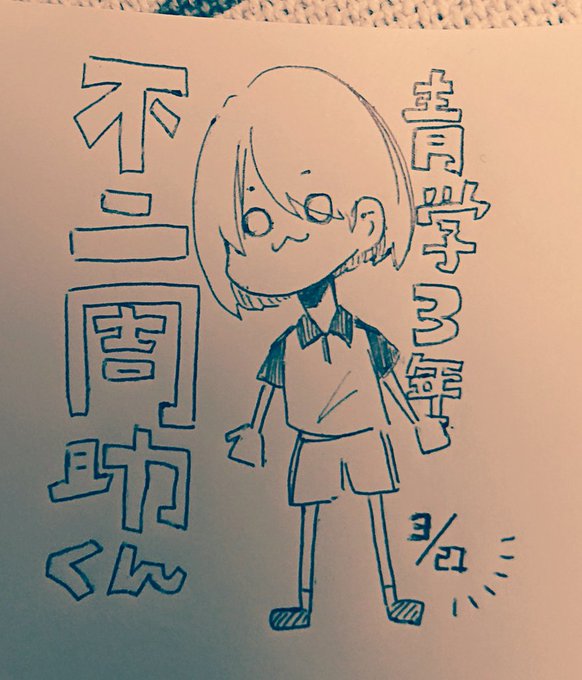 青学3年
不二周助くん
3/21